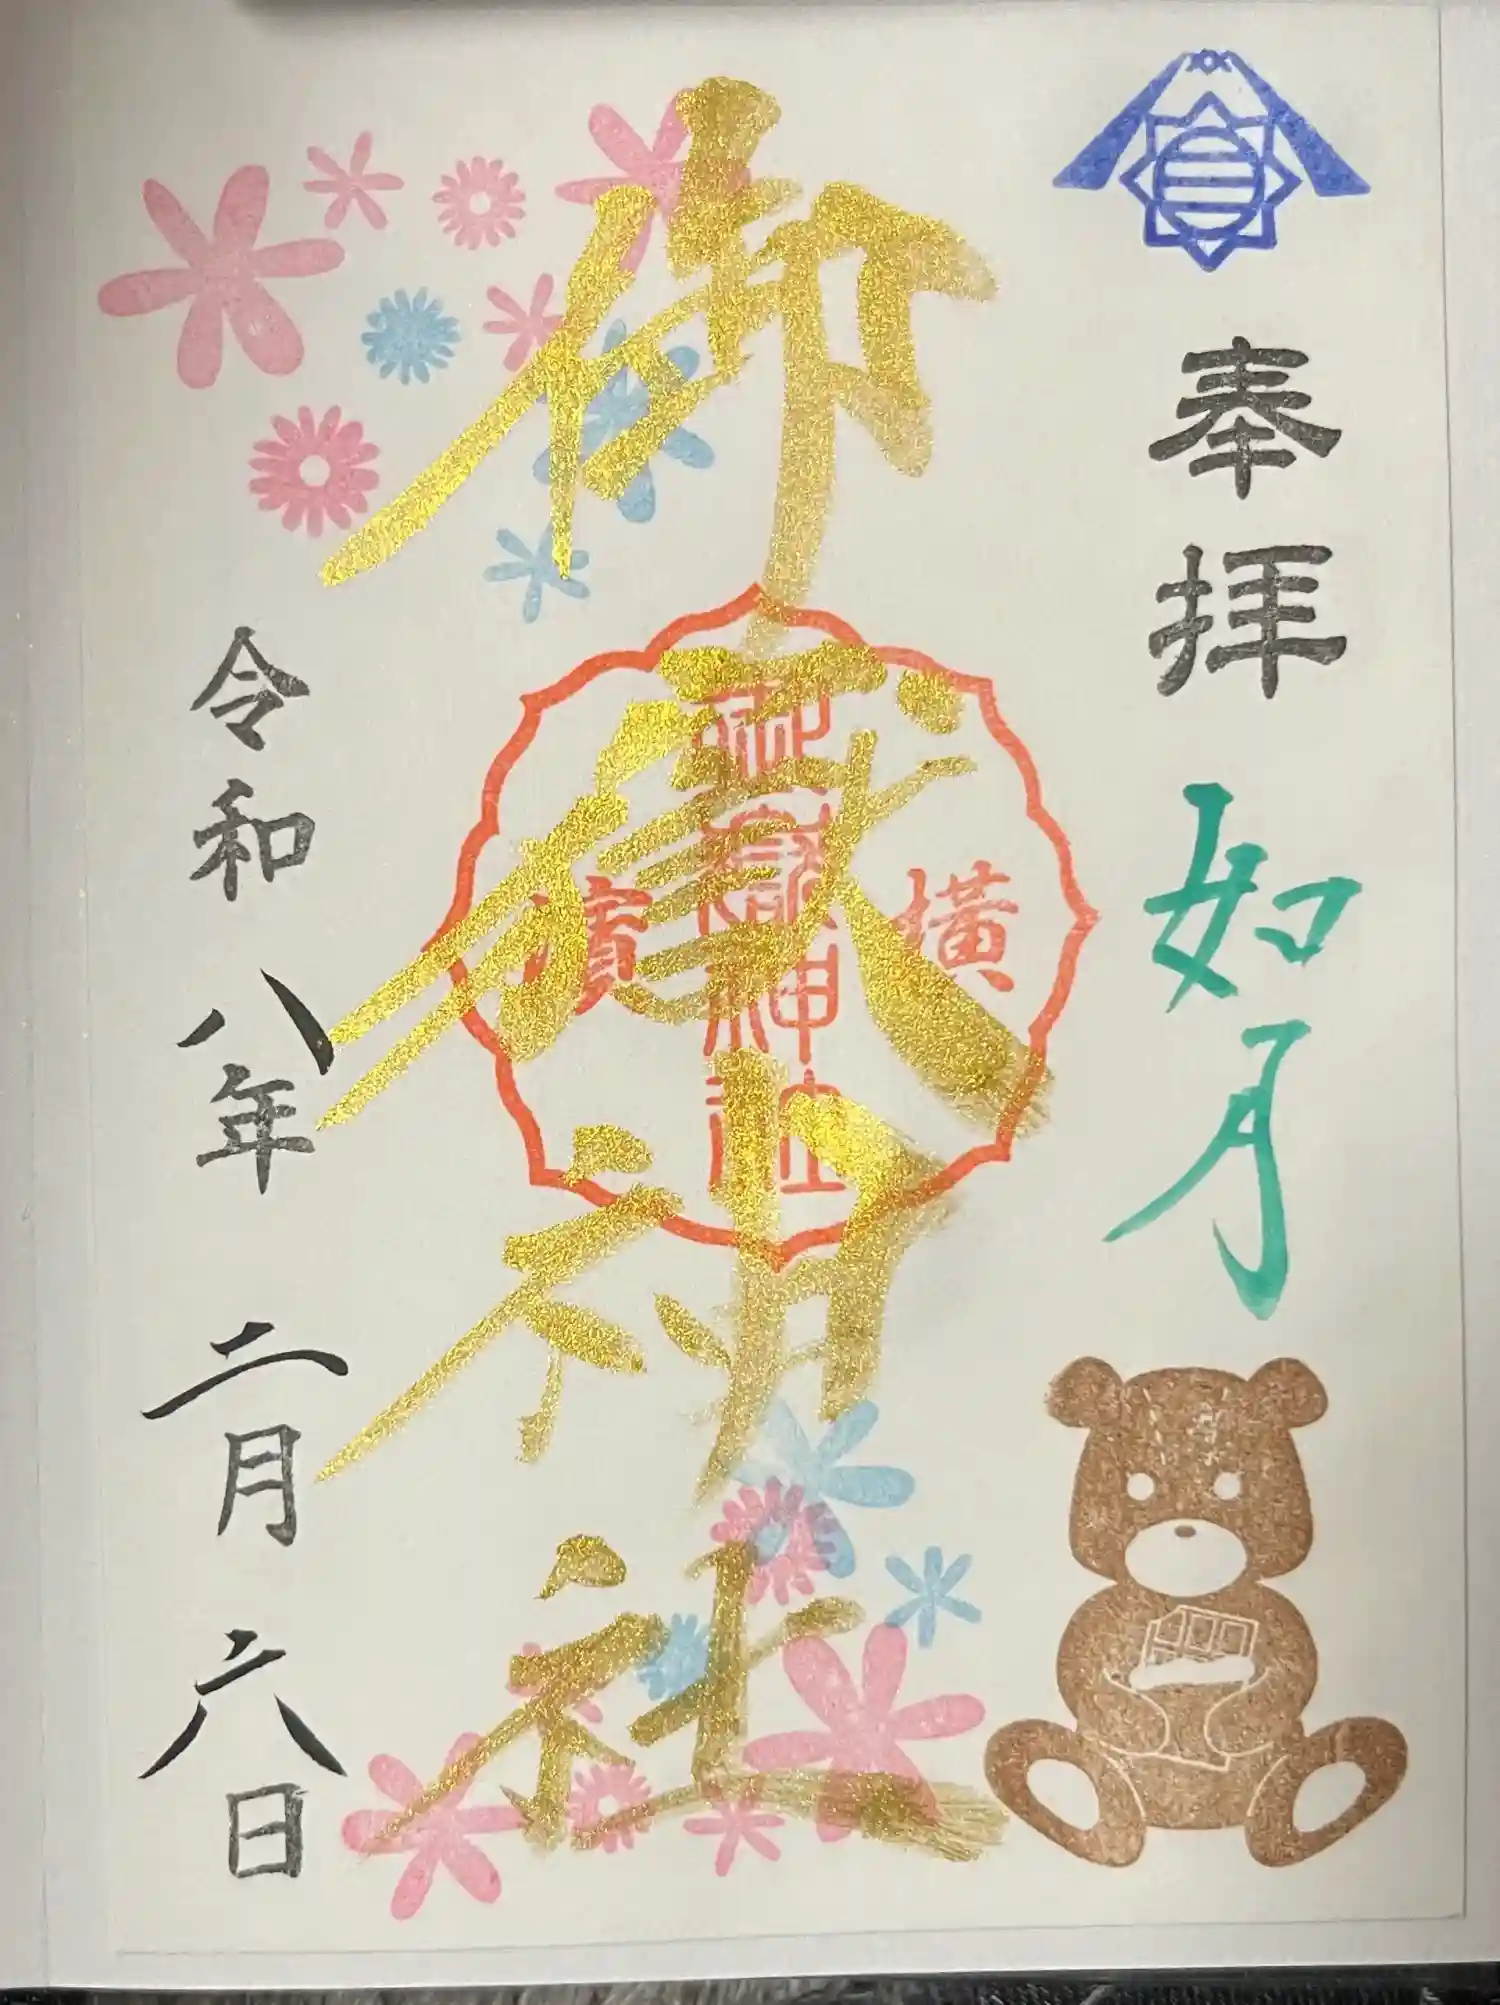 奉拝
如月
御嶽神社
横
御嶽神社
濱
令和八年二月六日